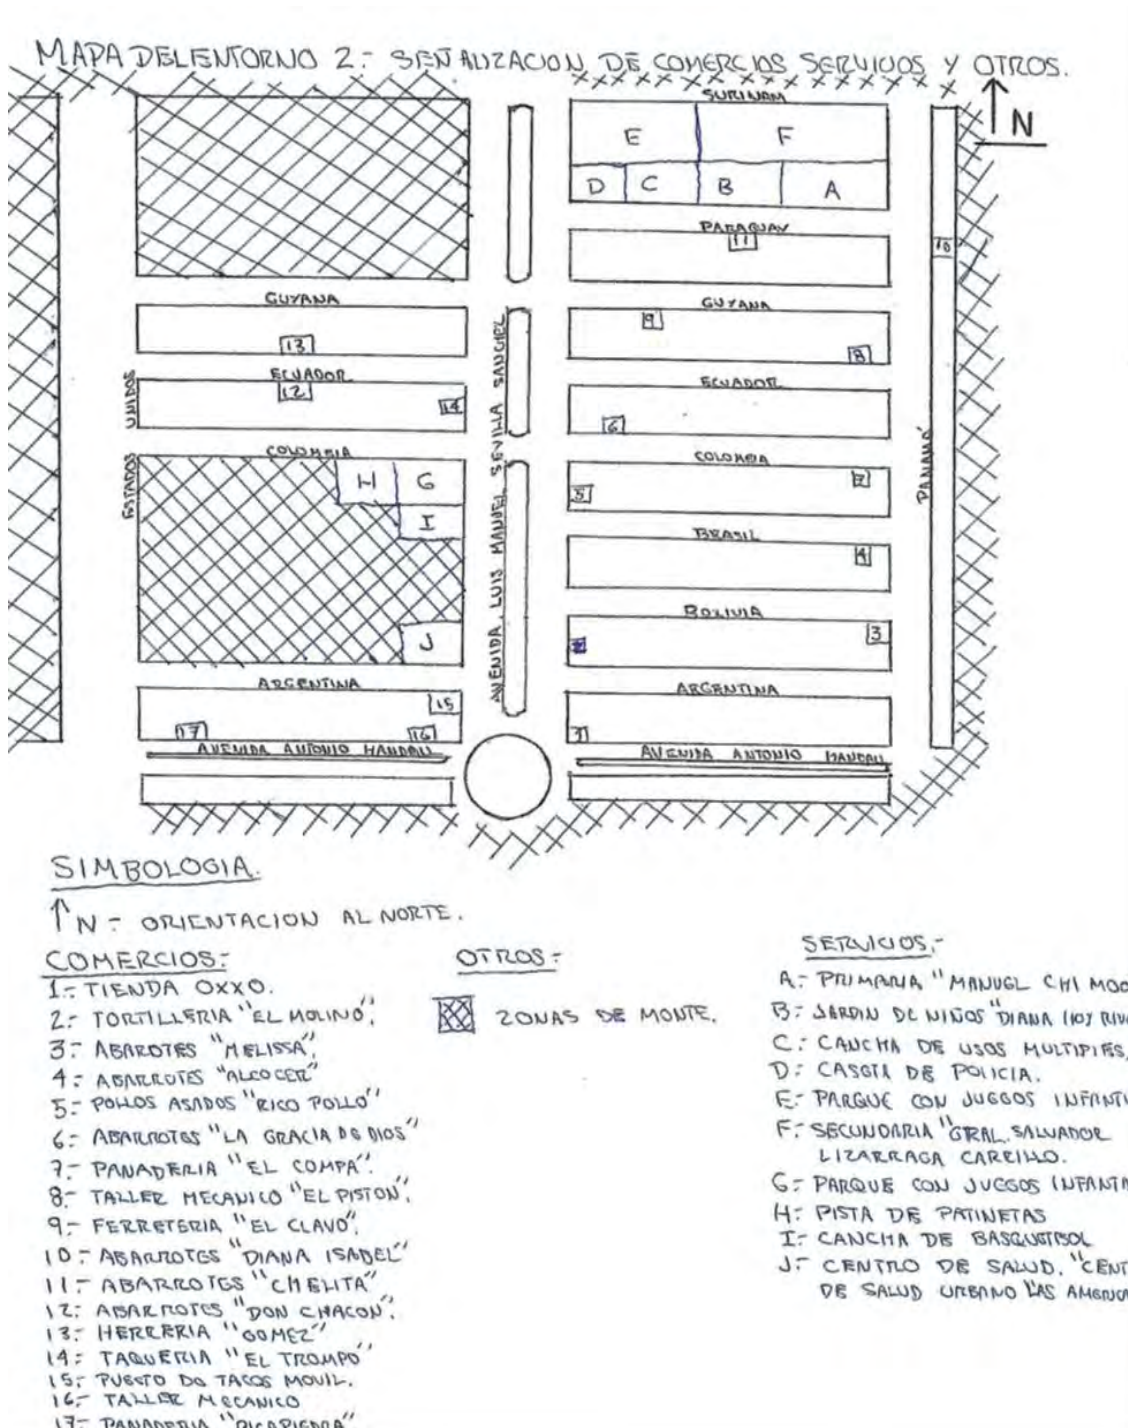 MAPA DEL ENTORNO 2.- SEÑALIZACION DE COMERCIOS SERVICIOS Y OTROS.
N
SURINAM
E F
D C B A
PARAGUAY
11
10
GUYANA GUYANA
9
13 8
ECUADOR ECUADOR
12
14
6
ESTADOS UNIDOS
AVENIDA LUIS MANUEL SEVILLA SANCHEZ
PANAMÁ
COLOMBIA COLOMBIA
H G
7
5
I
BRASIL
4
BOLIVIA
3
J
ARGENTINA ARGENTINA
15
17 16 1
AVENIDA ANTONIO HANDALL AVENIDA ANTONIO HANDALL
SIMBOLOGIA.
↑N - ORIENTACION AL NORTE.
COMERCIOS:-
1.- TIENDA OXXO.
2.- TORTILLERIA "EL MOLINO".
3.- ABAROTES "MELISSA".
4.- ABARROTES "ALCOCER"
5.- POLLOS ASADOS "RICO POLLO"
6.- ABARROTES "LA GRACIA DE DIOS"
7.- PANADERIA "EL COMPA".
8.- TALLER MECANICO "EL PISTON".
9.- FERRETERIA "EL CLAVO".
10.- ABARROTES "DIANA ISABEL"
11.- ABARROTES "CHELITA"
12.- ABARROTES "DON CHACON".
13.- HERRERIA "GOMEZ"
14.- TAQUERIA "EL TROMPO"
15.- PUESTO DE TACOS MOVIL.
16.- TALLER MECANICO
17.- PANADERIA "PICAPIEDRA"
OTROS:-
ZONAS DE MONTE.
SERVICIOS:-
A.- PRIMARIA "MANUEL CHI MOO
B.- JARDIN DE NIÑOS "DIANA
C.- CANCHA DE USOS MULTIPLES.
D.- CASETA DE POLICIA.
E.- PARQUE CON JUEGOS INFANTI
F.- SECUNDARIA "GRAL. SALVADOR
LIZARRAGA CARRILLO.
G.- PARQUE CON JUEGOS INFANTI
H.- PISTA DE PATINETAS
I.- CANCHA DE BASQUETBOL
J.- CENTRO DE SALUD. "CENT
DE SALUD URBANO LAS AMERICA